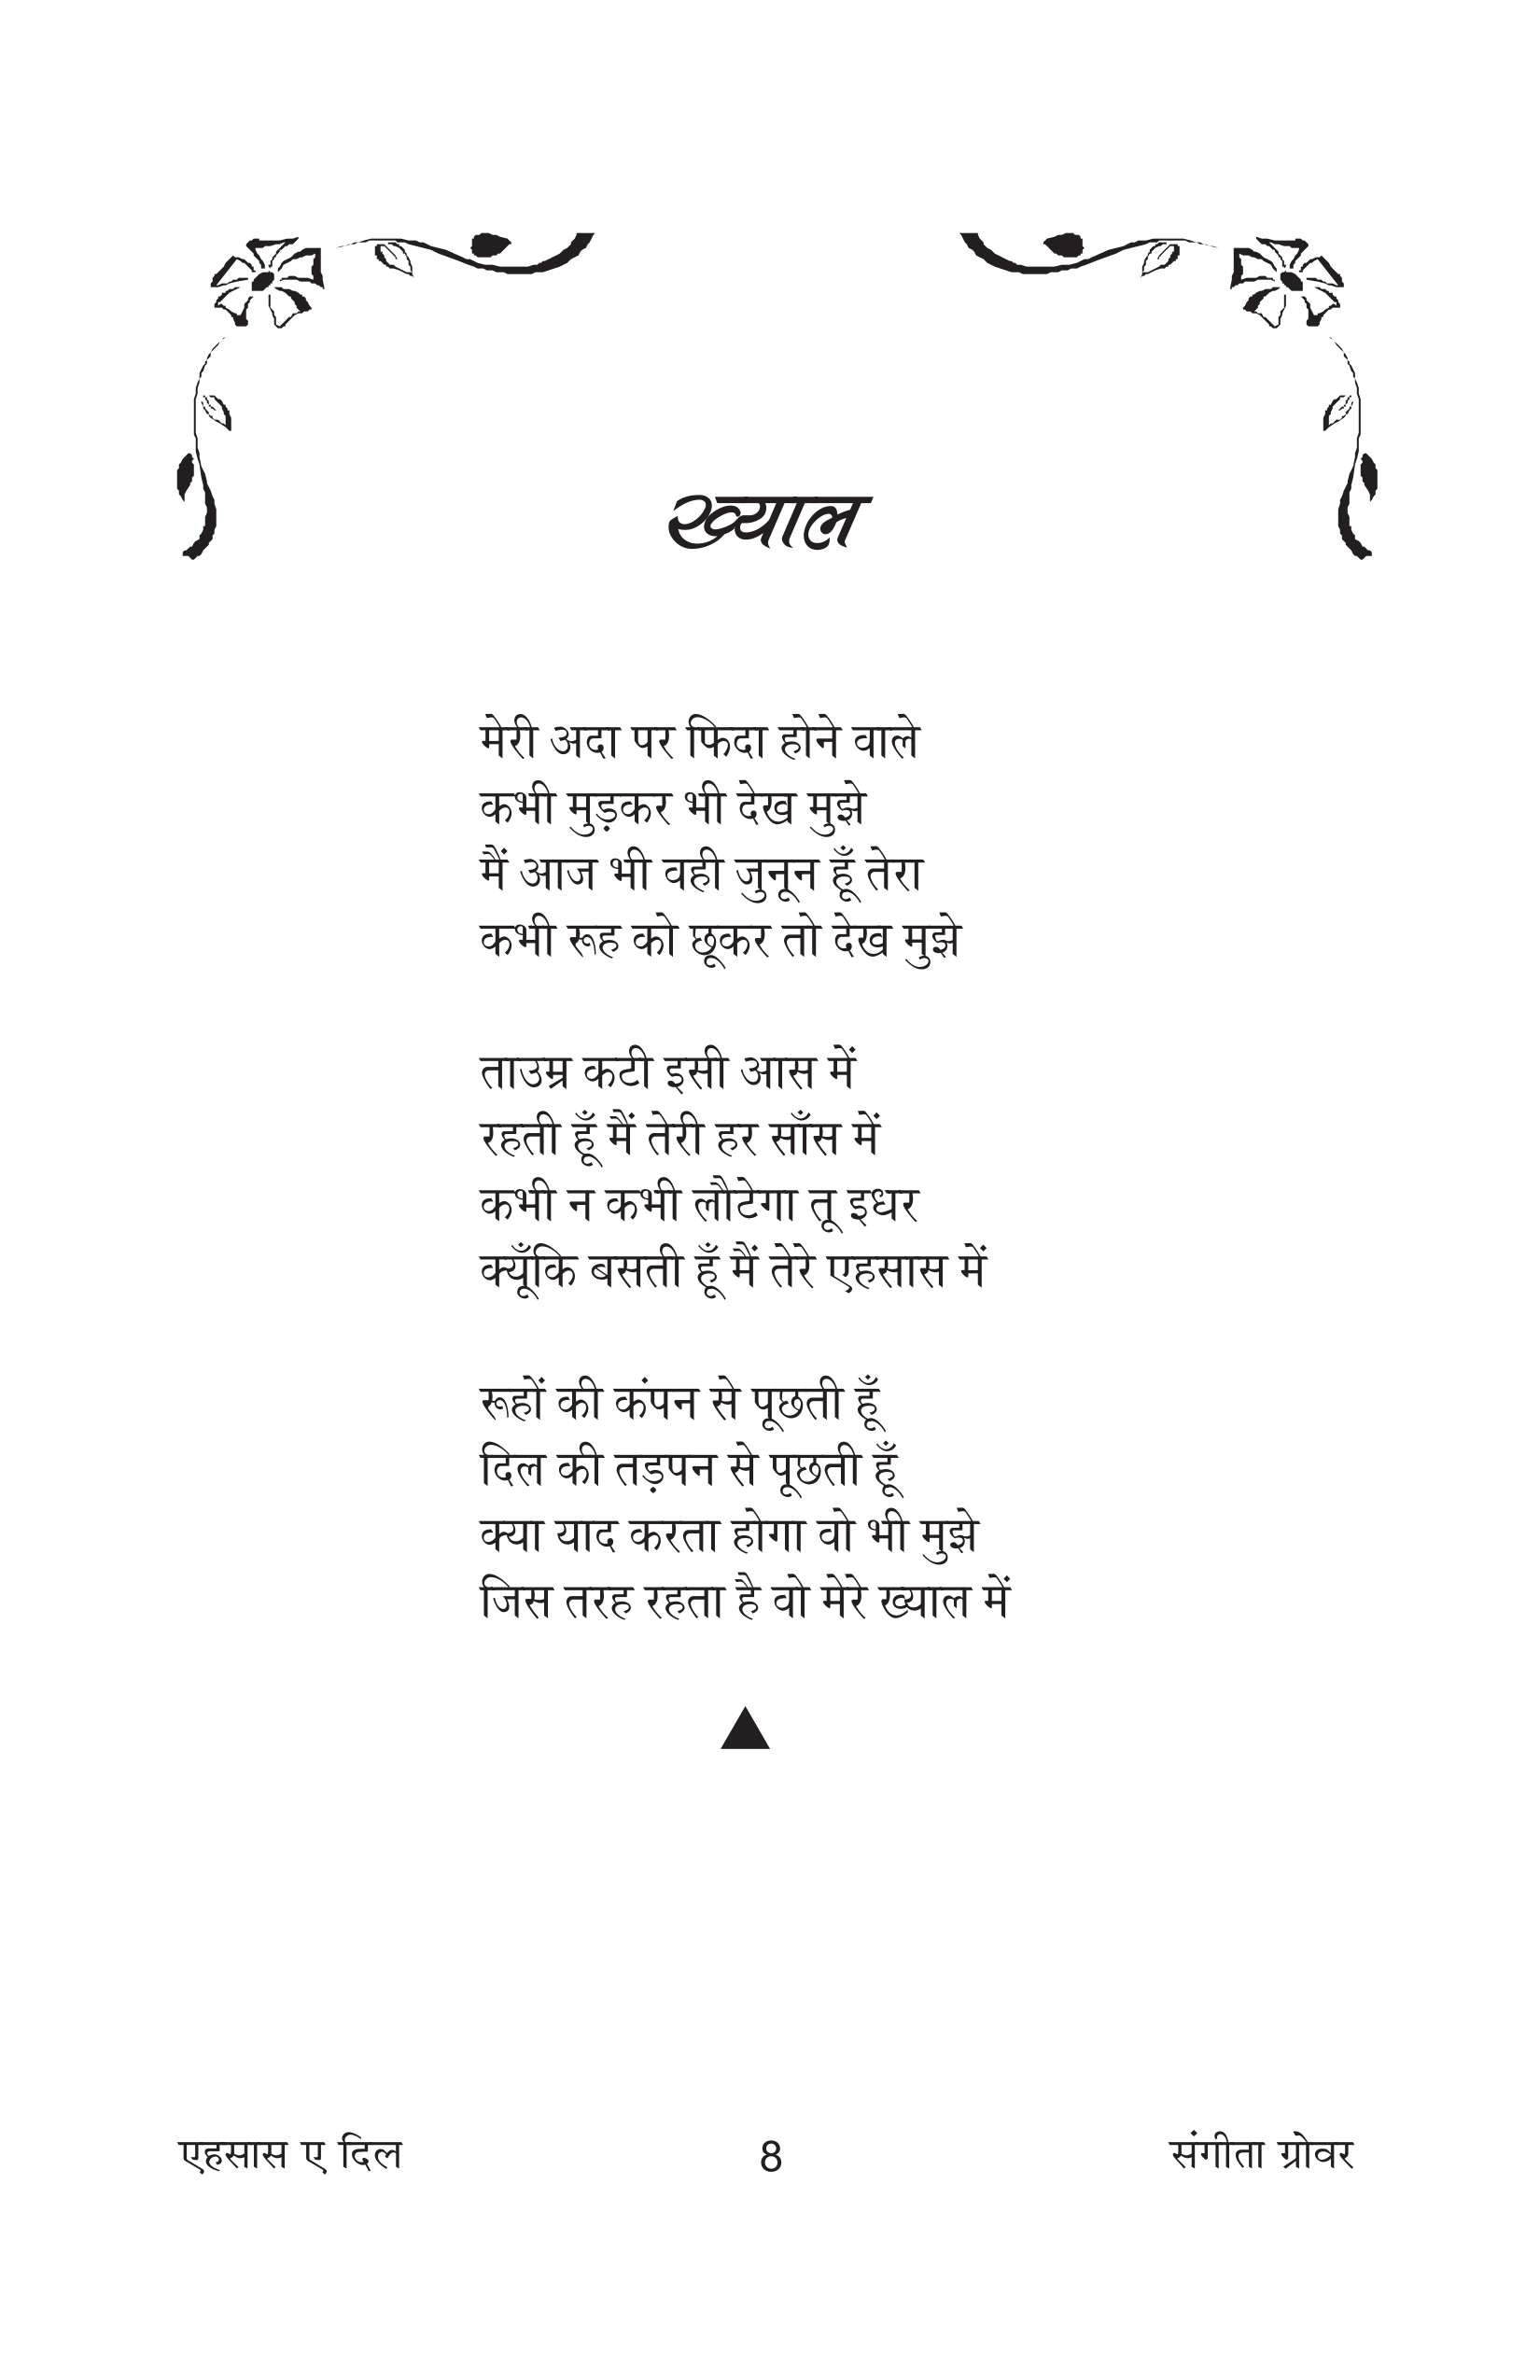 ख्याल
मेरी अदा पर फिदा होने वाले
कभी मुड़कर भी देख मुझे
मैं आज भी वही जुनून हूँ तेरा
कभी रूह को छूकर तो देख मुझे
ताउम्र कटी इसी आस में
रहती हूँ मैं तेरी हर साँस में
कभी न कभी लौटेगा तू इधर
क्यूँकि बसती हूँ मैं तेरे एहसास में
रूहों की कंपन से पूछती हूँ
दिल की तड़पन से पूछती हूँ
क्या याद करता होगा वो भी मुझे
जिस तरह रहता है वो मेरे ख्याल में
एहसास ए दिल 8 संगीता ग्रोवर